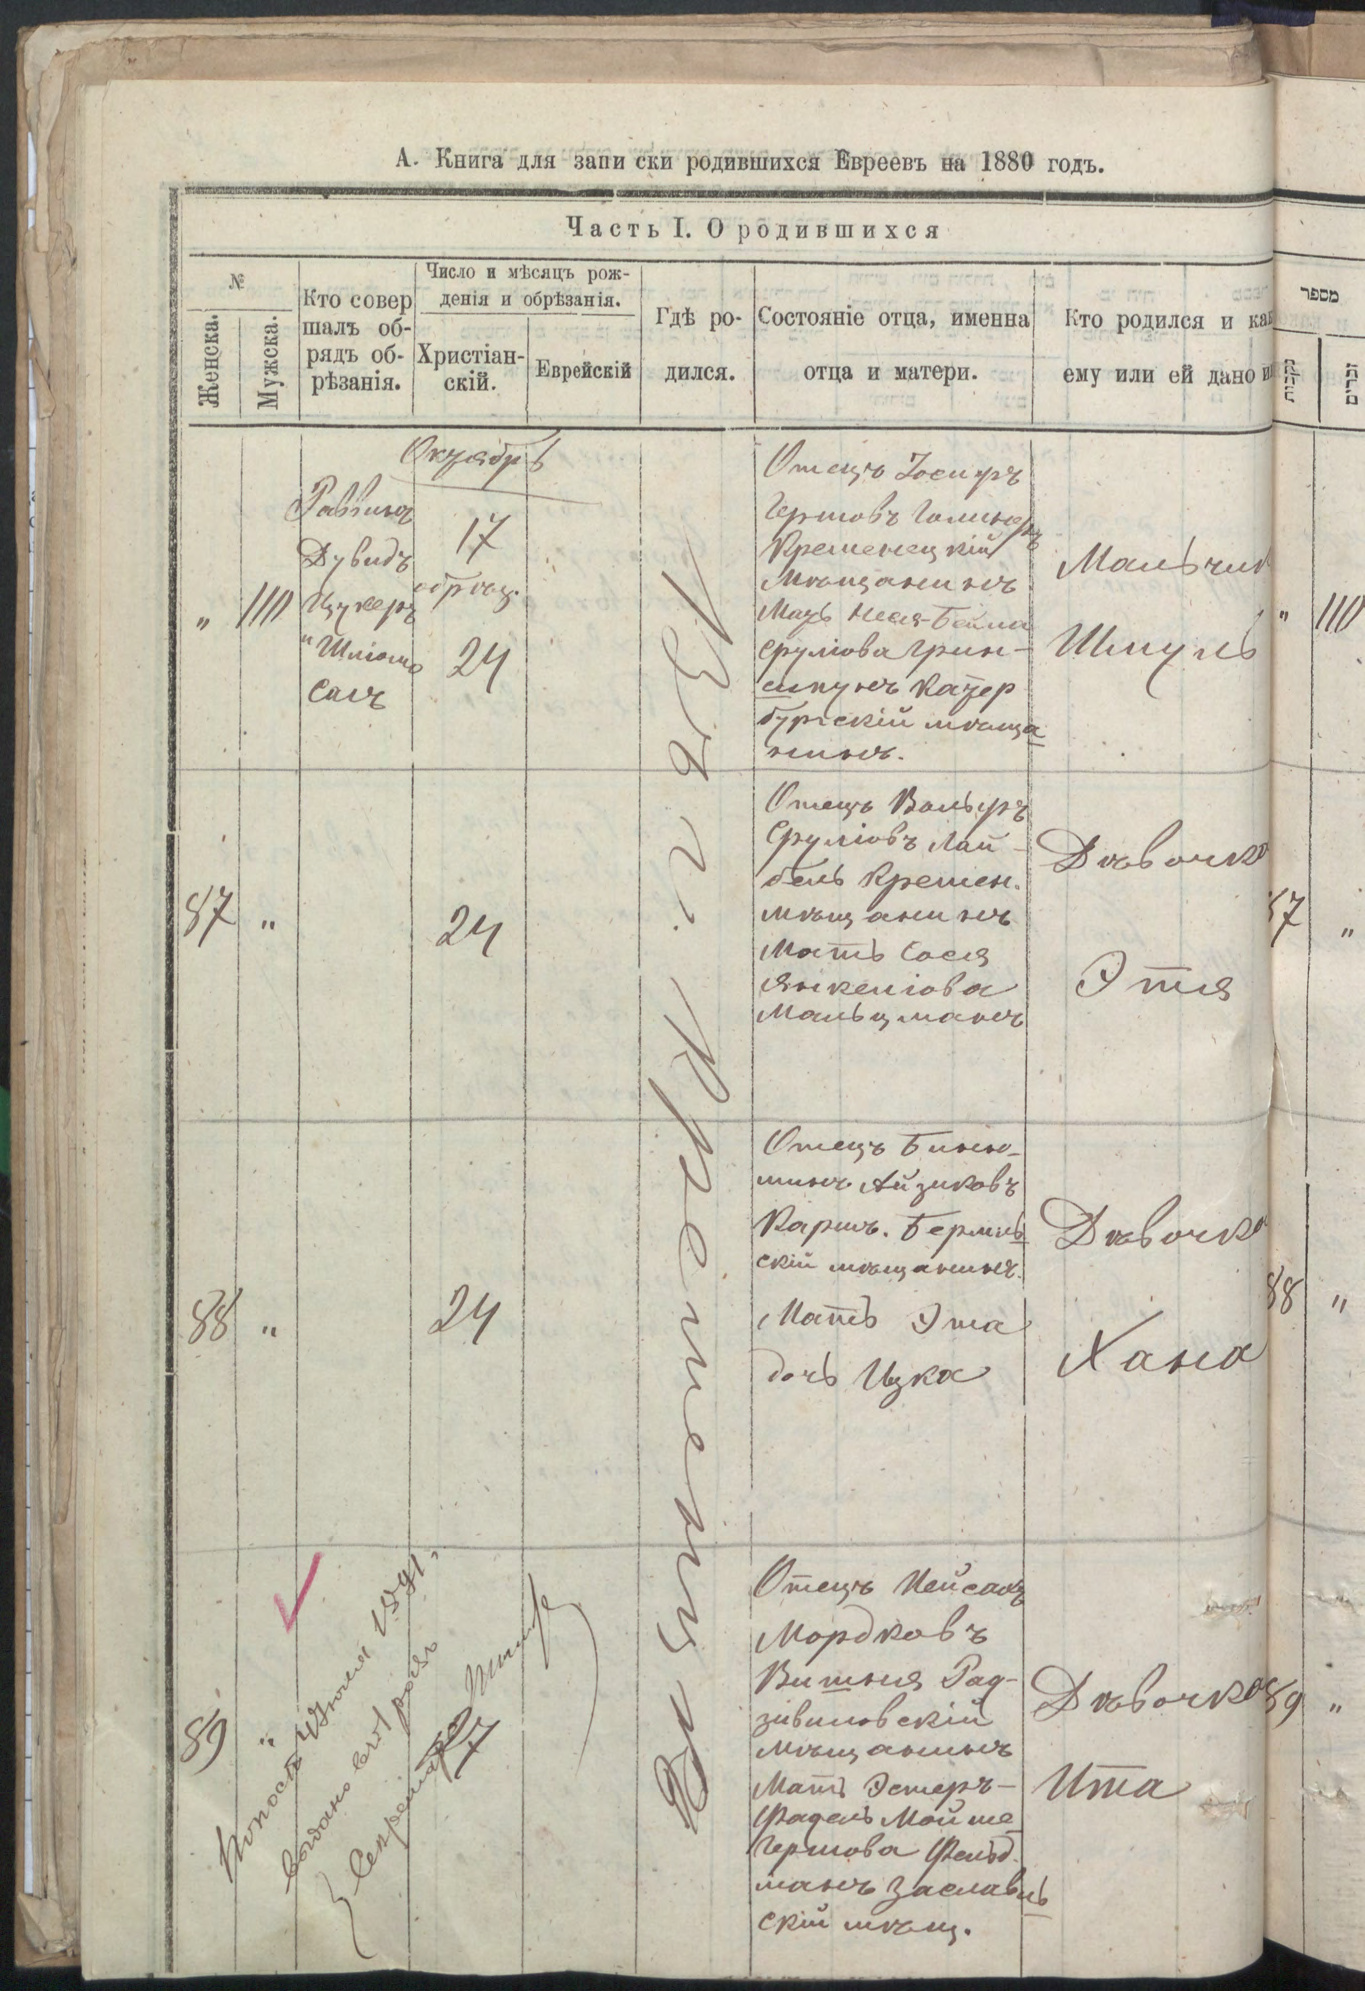 А. Книга для запи ски родившихся Евреевъ на 1880 годъ.
Часть I. О родившихся
№
Женска.
Мужска.
Кто совер
шалъ об-
рядъ об-
рѣзанія.
Число и мѣсяцъ рож-
денія и обрѣзанія.
Христіан-
скій.
Еврейскій
Гдѣ ро-
дился.
Состояніе отца, именна
отца и матери.
Кто родился и как
ему или ей дано и
מספר
נקבות
זכרים
Октябрь
„ 110
Раввинъ
Дувидъ
Цукеръ
"Шліомо
Салъ
17
обрѣз.
24
Отецъ Іосифъ
Гершовъ
Кременецкій
мѣщанинъ
Мать Неся-Бейла
Сруліова Грин-
шпунъ Катер
бургскій мѣща
нинъ.
Мальчик
Шмуль
" 110
87 "
24
Отецъ Вольфъ
Сруліовъ Лай-
бель Кремен.
мѣщанинъ
Мать Сося
Янкеліова
Мальцманъ
Дѣвочка
Этя
87 "
88 "
24
Отецъ Биню-
минъ Айзиковъ
Каршъ. Бермль
скій мѣщанинъ.
Мать Эта
дочь Ицка
Дѣвочка
Хана
88 "
г. Кременецъ
89 "
Секретарь
27
Отецъ Пейсахъ
Мордковъ
Витня Рад-
зивиловскій
мѣщанинъ
Мать Эстеръ-
Фадель Мойше
Гершова Фельд.
манъ Заславль
скій мѣщ.
Дѣвочка
Ита
89 "